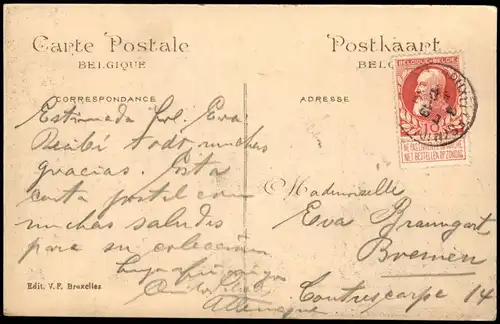 Carte Postale
BELGIQUE
CORRESPONDANCE
Estimada Srl. Eva.
Recibí todo muchas
gracias. Esta
carta postal con
muchas saludes
para su colección
Postkaart
ADRESSE
BELGIQUE-BELGIË
NE PAS LIVRER LE DIMANCHE
NET BESTELLEN OP ZONDAG
Mademoiselle
Eva Braungart
Bremen
Contrescarpe 14
Allemagne
Edit. V.F. Bruxelles